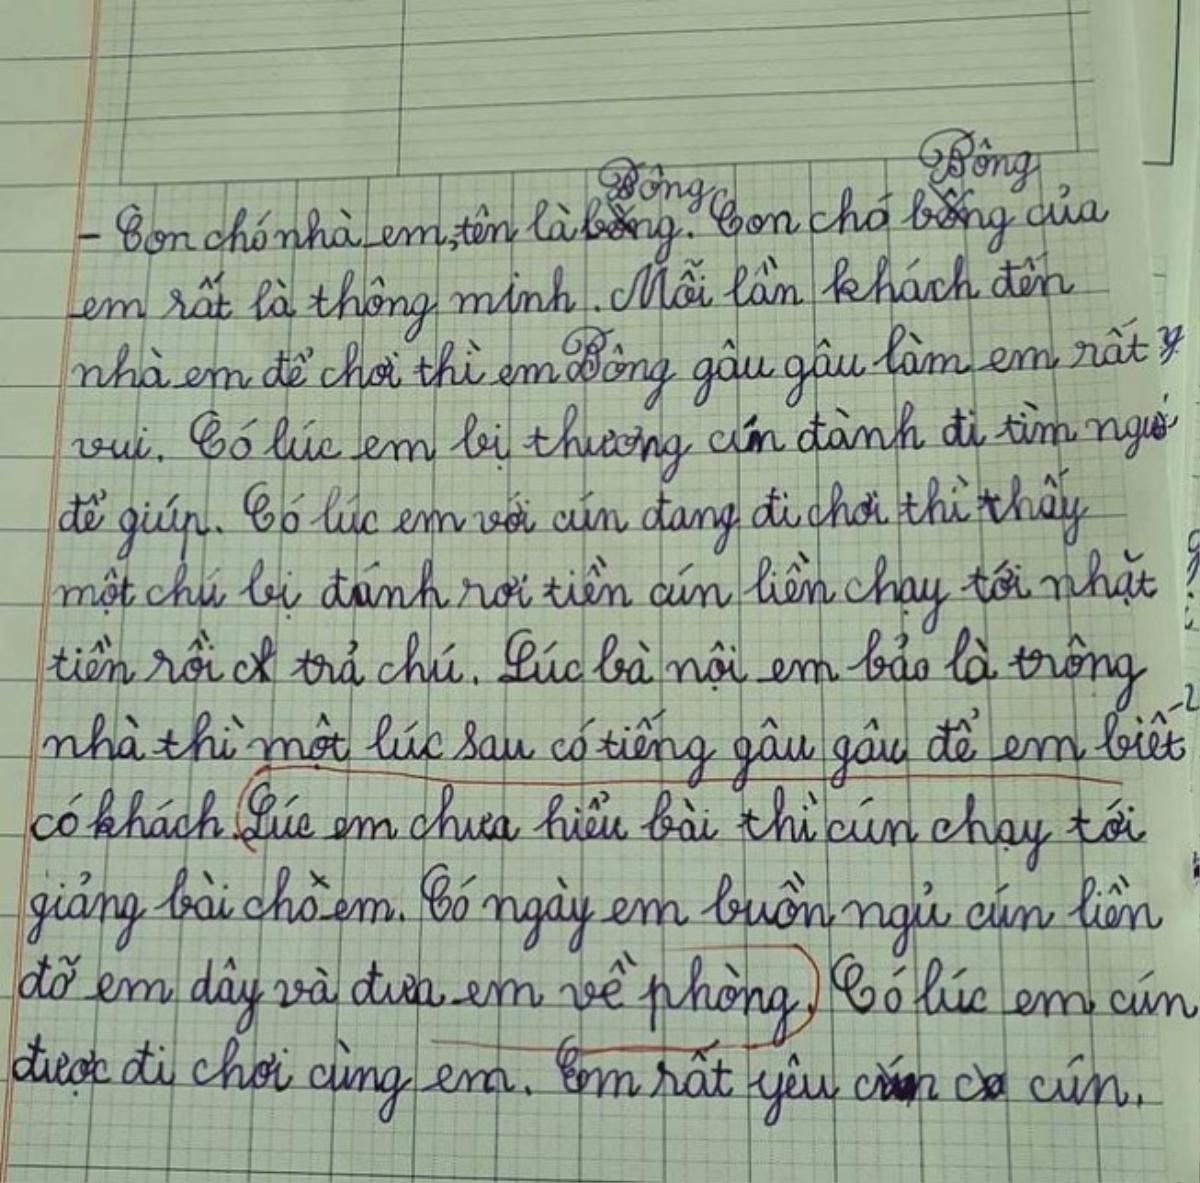 Bông Bông
- Con chó nhà em, tên là bông. Con chó bông của
em rất là thông minh. Mỗi lần khách đến
nhà em để chơi thì em Bông gâu gâu làm em rất
vui. Có lúc em bị thương cún đành đi tìm ngườ
để giúp. Có lúc em với cún đang đi chơi thì thấy
một chú bị đánh rơi tiền cún liền chạy tới nhặt
tiền rồi trả chú. Lúc bà nội em bảo là trông
nhà thì một lúc sau có tiếng gâu gâu để em biết
có khách. Lúc em chưa hiểu bài thì cún chạy tới
giảng bài cho em. Có ngày em buồn ngủ cún liền
đỡ em dây và đưa em về phòng. Có lúc em cún
được đi chơi cùng em. Em rất yêu cún.